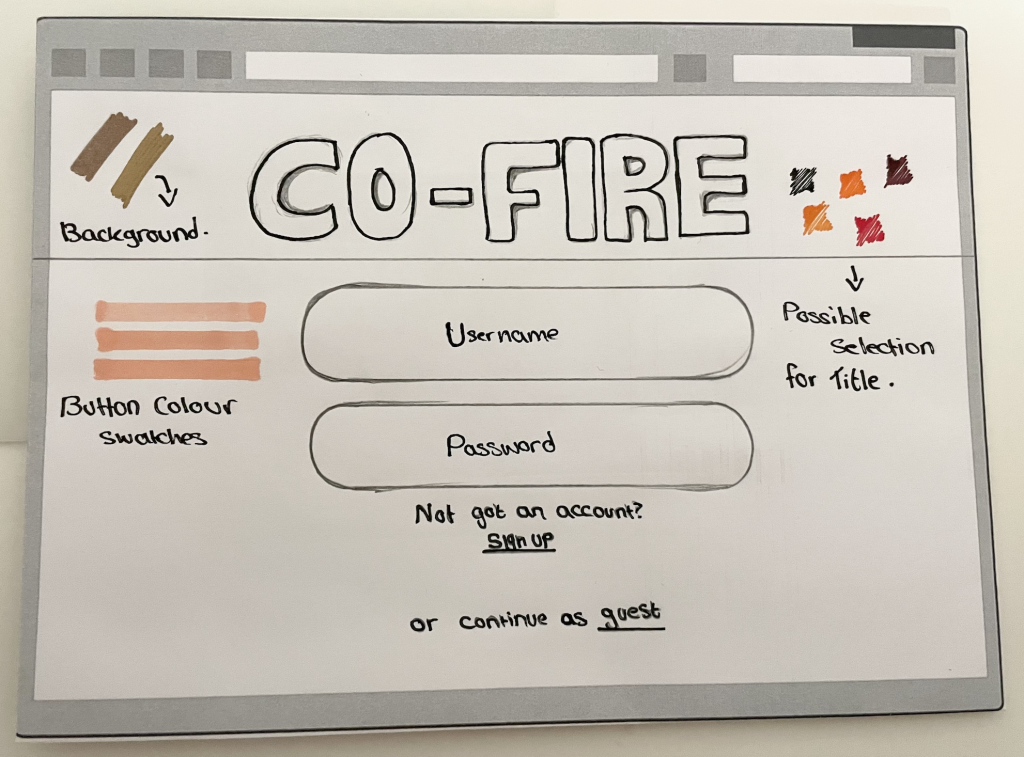 CO-FIRE
Background.
Username
Possible
Selection
for Title.
Button Colour
swatches
Password
Not got an account?
Sign up
or continue as guest